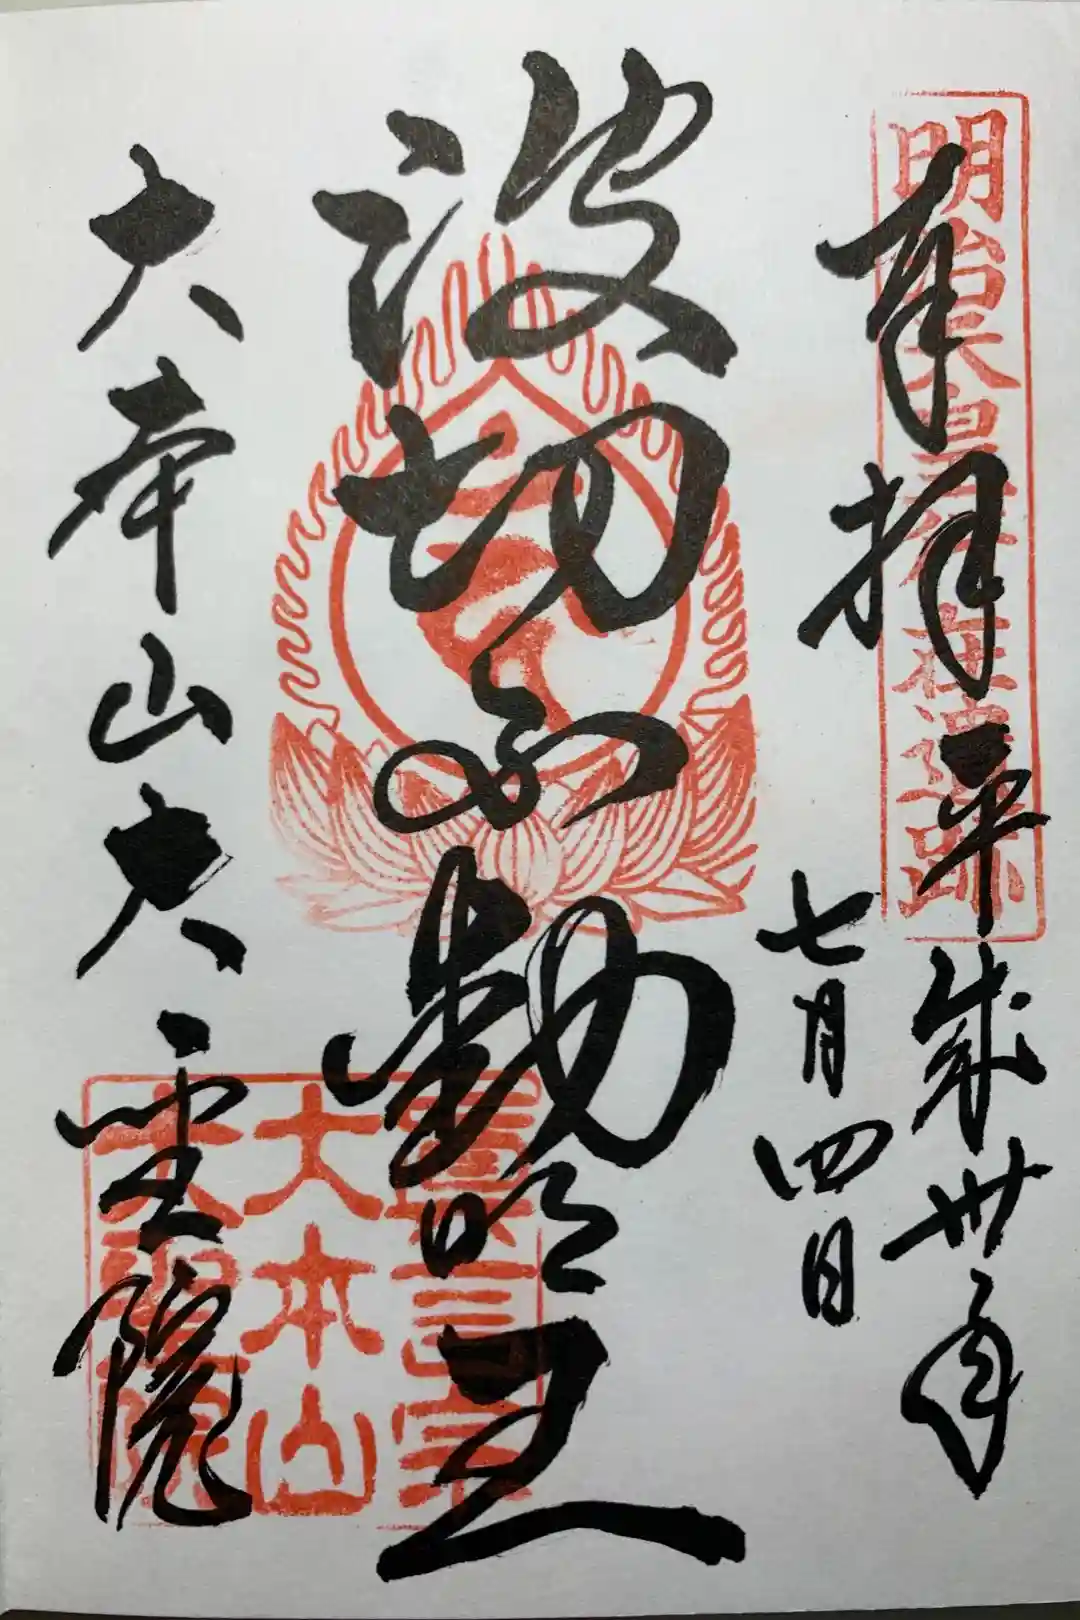 明治天皇行在遺跡
奉拝 平成卅年
七月四日
波切不動明王
大本山大聖院
眞言宗
大本山
大聖院